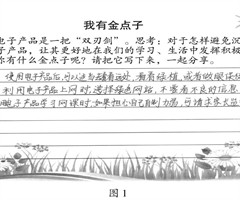 我有金点子
电子产品是一把“双刃剑”。思考：对于怎样避免沉
子产品，让其更好地在我们的学习、生活中发挥积极
你有什么金点子呢？请把它写下来，一起分享。
使用电子产品后,可以适当望望远处,看看绿植,或者做眼保健
利用电子产品上网时,选择绿色网站,不查看不良的信息
电子产品学习网课时,如果担心自己自制力弱,可请求家长监
图1